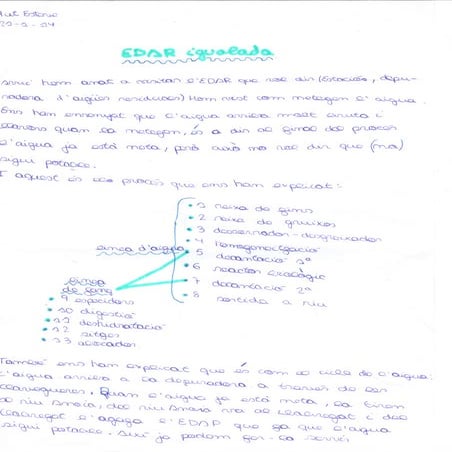 EDAR igualada
avui hem anat a visitar l'EDAR que vol dir (Estació, depu-
radora d'aigües residuals) Hem vist com netegen l'aigua.
Ens han ensenyat que l'aigua arriba molt bruta i
llavors quan la netegen, és a dir al final del procés
l'aigua ja està neta, però això no vol dir que (no)
sigui potable.
I aquest és el procés que ens han explicat:
línea d'aigua
• 1 reixa de fins
• 2 reixa de gruixos
• 3 dessorrador-desgreixador
• 4 homogeneització
• 5 decantació 1ª
• 6 reactor biològic
• 7 decantació 2ª
• 8 sortida a riu
línea
de fang
• 9 espeidors
• 10 digestió
• 11 deshidratació
• 12 sitges
• 13 assecador
També ens han explicat que és com el cicle de l'aigua.
L'aigua arriba a la depuradora a través de les
clavegueres, Quan l'aigua ja està neta, la tiren
al riu Anoia, del riu Anoia va al Llobregat i del
Llobregat l'agafa l'EDAP que fa que l'aigua
sigui potable. Així ja podem fer-la servir